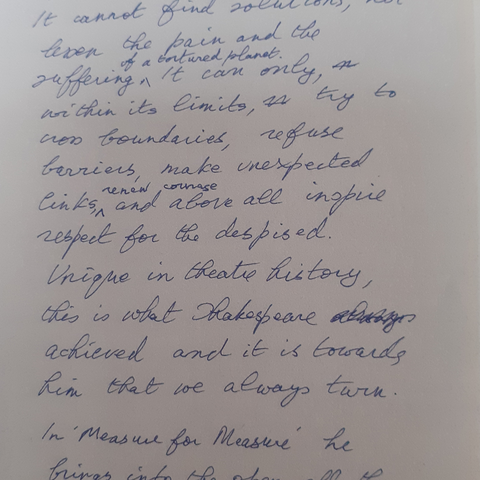 It cannot find solutions, nor
lessen the pain and the
of a tortured planet.
suffering ^ It can only,
within its limits, try to
cross boundaries, refuse
barriers, make unexpected
renew courage
links, ^ and above all inspire
respect for the despised.
Unique in theatre history,
this is what Shakespeare always
achieved and it is towards
him that we always turn.
In 'Measure for Measure' he
brings into the open all the